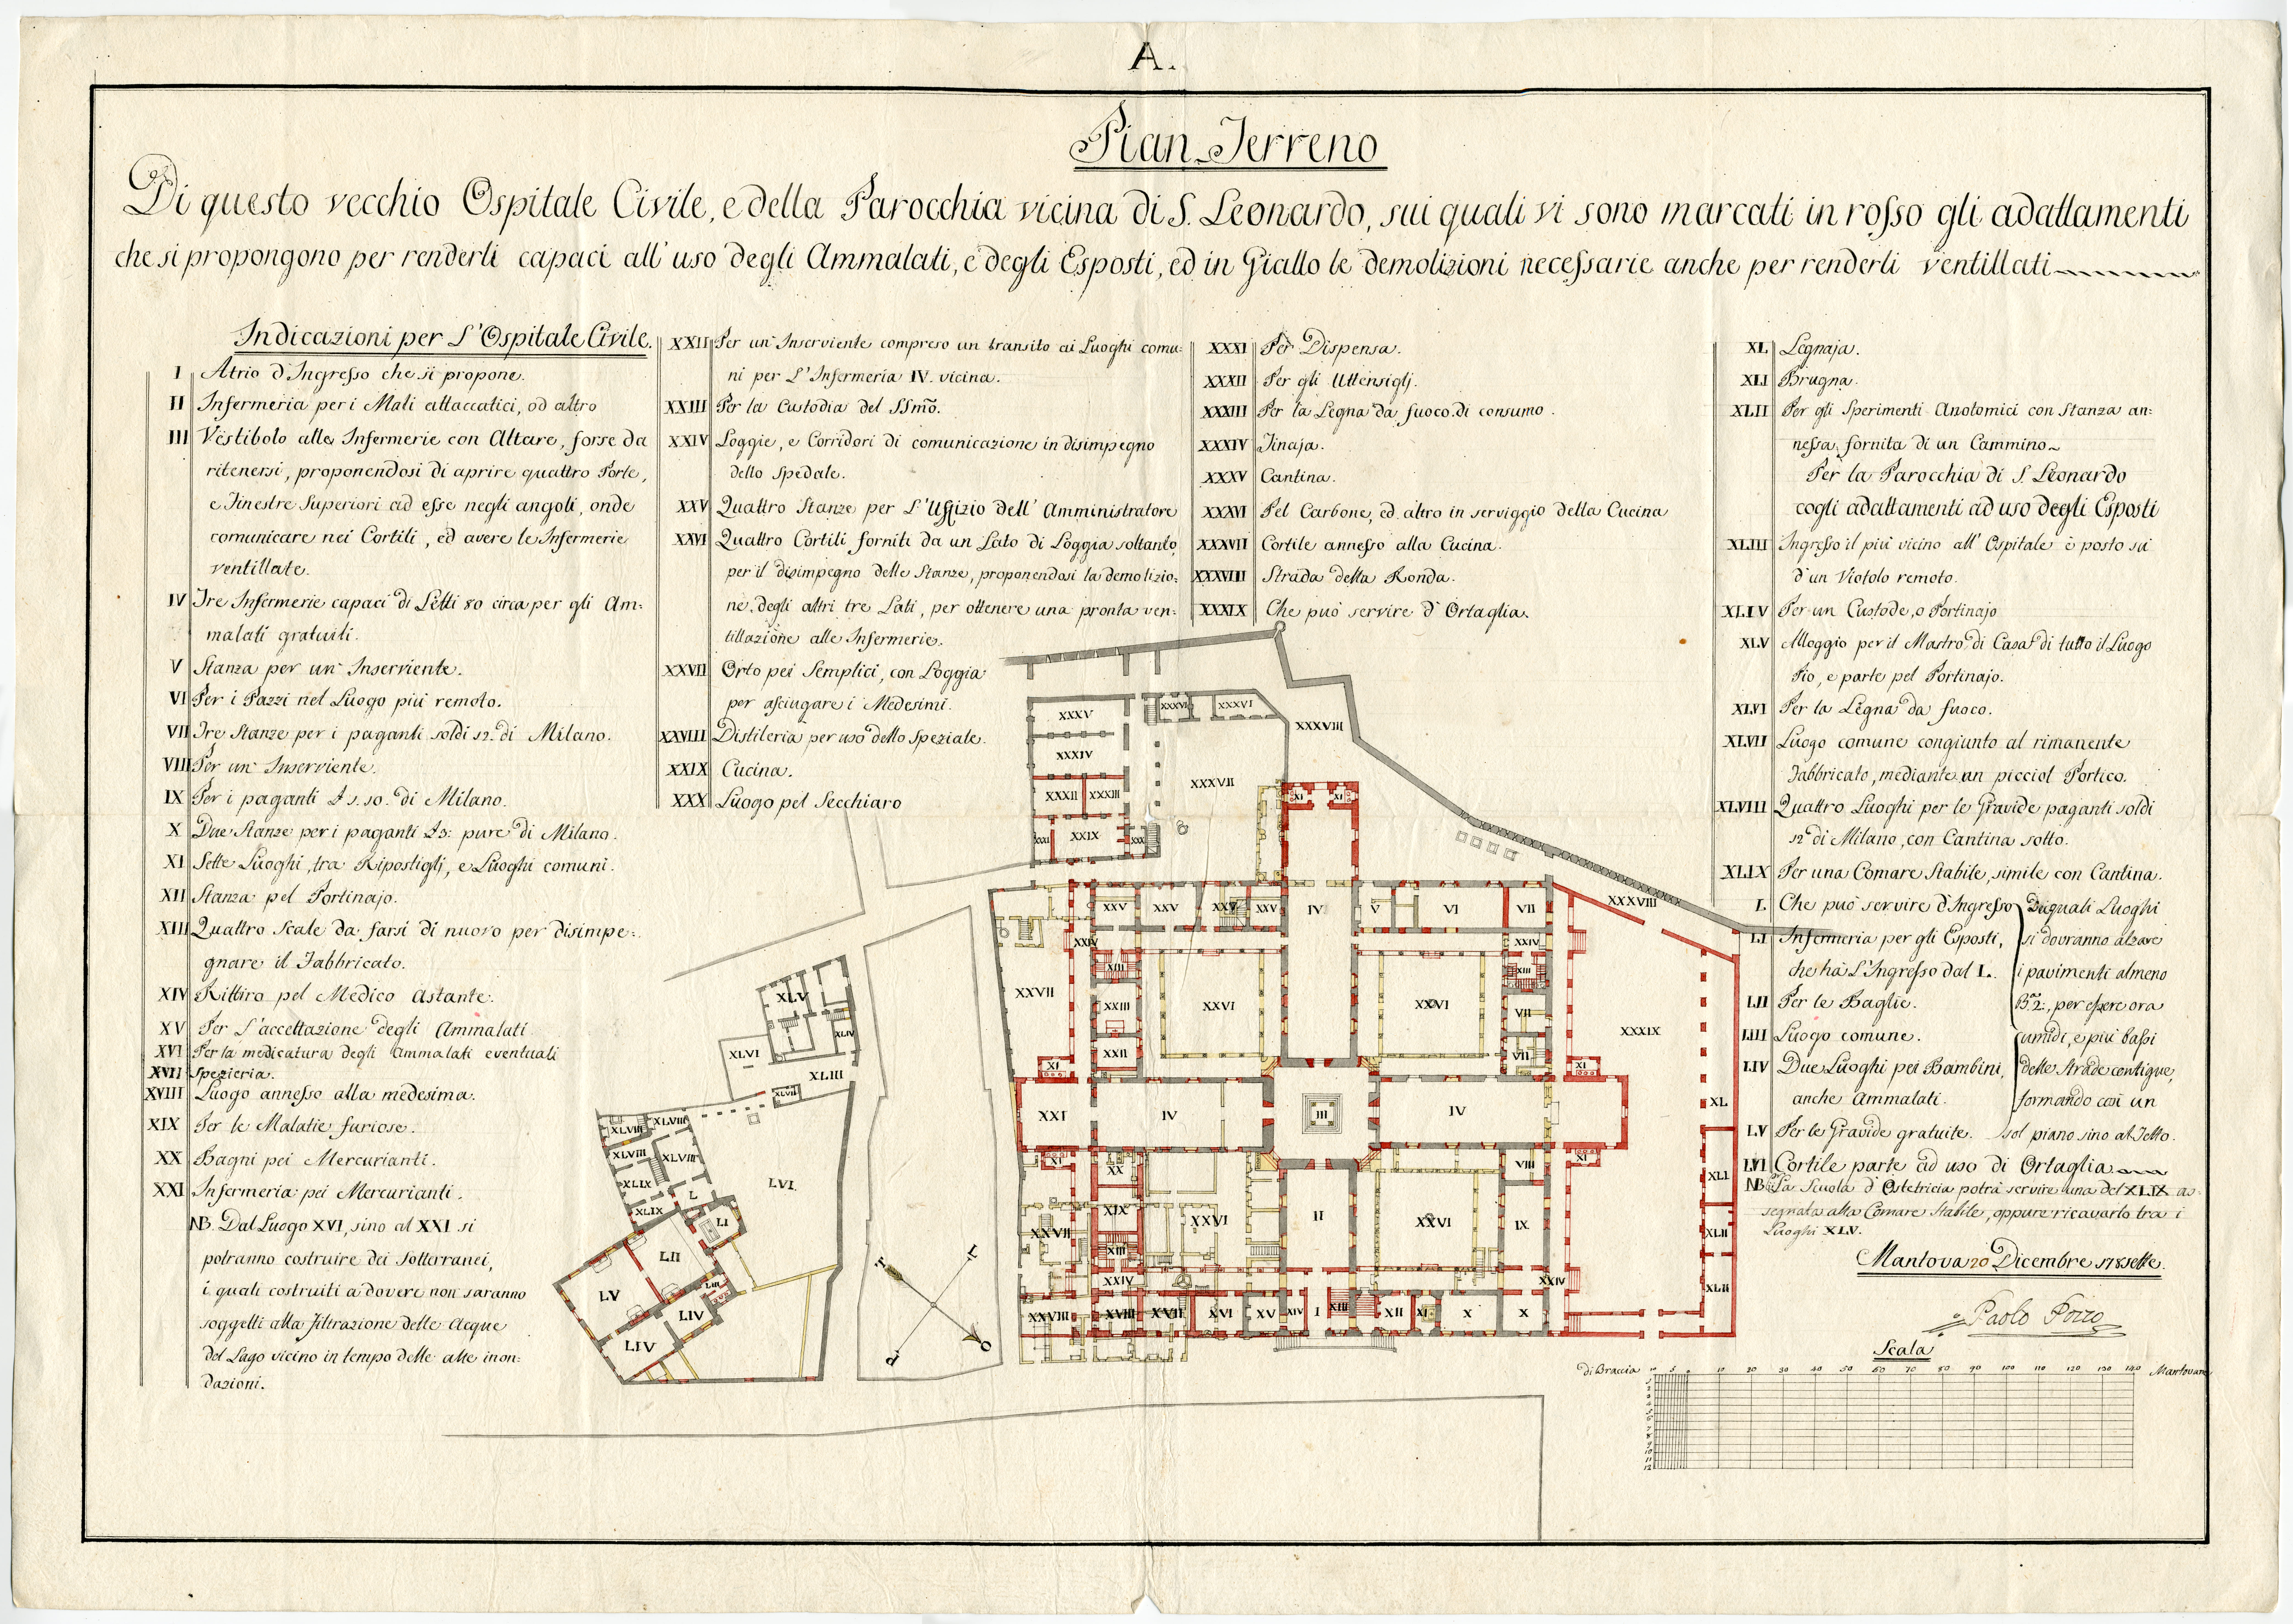 A.
Pian Terreno
Di questo vecchio Ospitale Civile, e della Parocchia vicina di S. Leonardo, sui quali vi sono marcati in rosso gli adattamenti
che si propongono per renderli capaci all' uso degli Ammalati, e degli Esposti, ed in Giallo le demolizioni necessarie anche per renderli ventillati
Indicazioni per L'Ospitale Civile.
I Atrio d'Ingresso che si propone.
II Infermeria per i Mali attaccatici, od altro
III Vestibolo alle Infermerie con Altare, forse da
ritenersi, proponendosi di aprire quattro Porte,
e Finestre Superiori ad esse negli angoli, onde
comunicare nei Cortili, ed avere le Infermerie
ventillate.
IV Tre Infermerie capaci di Letti 80 circa per gli Am:
malati gratuiti.
V Stanza per un' Inserviente.
VI Per i Pazzi nel Luogo più remoto.
VII Tre Stanze per i paganti soldi 12. di Milano.
VIII Per un' Inserviente.
IX Per i paganti s. 10. di Milano.
X Due Stanze per i paganti pure di Milano.
XI Sette Luoghi, tra Ripostiglj, e Luoghi comuni.
XII Stanza pel Portinajo.
XIII Quattro Scale da farsi di nuovo per disimpe:
gnare il Fabbricato.
XIV Rittiro pel Medico Astante.
XV Per L'accettazione degli Ammalati
XVI Per la medicatura degli Ammalati eventuali
XVII Spezieria.
XVIII Luogo annesso alla medesima.
XIX Per le Malatie furiose.
XX Bagni pei Mercurianti.
XXI Infermeria pei Mercurianti.
NB. Dal Luogo XVI, sino al XXI si
potranno costruire dei Sotterranei,
i quali costruiti a dovere non saranno
soggetti alla Filtrazione delle Acque
del Lago vicino in tempo delle alte inon:
dazioni.
XXII Per un' Inserviente compreso un transito ai Luoghi comu:
ni per L'Infermeria IV. vicina.
XXIII Per la Custodia del SSmo.
XXIV Loggie, e Corridori di comunicazione in disimpegno
dello Spedale.
XXV Quattro Stanze per L'Uffizio dell' Amministratore
XXVI Quattro Cortili forniti da un Lato di Loggia soltanto,
per il disimpegno delle Stanze, proponendosi la demolizio:
ne degli altri tre Lati, per ottenere una pronta ven:
tillazione alle Infermerie.
XXVII Orto pei Semplici, con Loggia
per asciugare i Medesimi.
XXVIII Distileria per uso dello Speziale.
XXIX Cucina.
XXX Luogo pel Secchiaro
XXXI Per Dispensa.
XXXII Per gli Uttensiglj.
XXXIII Per la Legna da fuoco di consumo.
XXXIV Tinaja.
XXXV Cantina.
XXXVI Pel Carbone, ed altro in serviggio della Cucina
XXXVII Cortile annesso alla Cucina.
XXXVIII Strada della Ronda.
XXXIX Che può servire d'Ortaglia.
XL Legnaja.
XLI Brugna.
XLII Per gli Sperimenti Anotomici con Stanza an:
nessa fornita di un Cammino
Per la Parocchia di S. Leonardo
cogli adattamenti ad uso degli Esposti
XLIII Ingresso il più vicino all' Ospitale è posto su
d'un Viotolo remoto.
XLIV Per un Custode, o Portinajo
XLV Alloggio per il Mastro di Casa di tutto il Luogo
Pio, e parte pel Portinajo.
XLVI Per la Legna da fuoco.
XLVII Luogo comune congiunto al rimanente
Fabbricato, mediante un picciol Portico.
XLVIII Quattro Luoghi per le Gravide paganti soldi
12 di Milano, con Cantina sotto.
XLIX Per una Comare Stabile, simile con Cantina.
L. Che può servire d'Ingresso
LI Infermeria per gli Esposti,
che ha L'Ingresso dal L.
LII Per le Baglie.
LIII Luogo comune.
LIV Due Luoghi pei Bambini,
anche Ammalati.
quali Luoghi
si dovranno alzare
i pavimenti almeno
Ba 2:, per essere ora
umidi, e più bassi
delle Strade contigue,
formando così un
sol piano sino al Tetto.
LV Per le Gravide gratuite.
LVI Cortile parte ad uso di Ortaglia
NB. La Scuola d'Ostetricia potrà servire una del XLIX as:
segnata alla Comare Stabile, oppure ricavarlo tra i
Luoghi XLV.
Mantova 20 Dicembre 178sette.
Paolo Pozzo
Scala
di Braccia 10 5 0 10 20 30 40 50 60 70 80 90 100 110 120 130 140 Mantovane
1
2
3
4
5
6
7
8
9
10
11
12
XXXV
XXXVI
XXXVI
XXXVIII
XXXIV
XXXVII
XXXII XXXIII
XXXI XXIX XXX
XI XI
XXXVIII
XXV XXV XXV XXV IV V VI VII
XXIV XXIV
XIII XIII
XXVII
XXIII XXVI XXVI VII
XXXIX
XXII VII
XI XI
XXI IV III IV
XL
XI XX VIII XI
XLI
XIX XXVI II XXVI IX
XXVII
XIII
XLII
XXIV XXIV
XLII
XXVIII XVIII XVII XVI XV XIV I XIII XII XI X X
XLV
XLIV
XLVI
XLIII
XLVII
XLVIII XLVIII
XLVIII XLVIII
XLIX L
XLIX LI
LVI
LII
LIII
LV
LIV
LIV
T
L
P
O